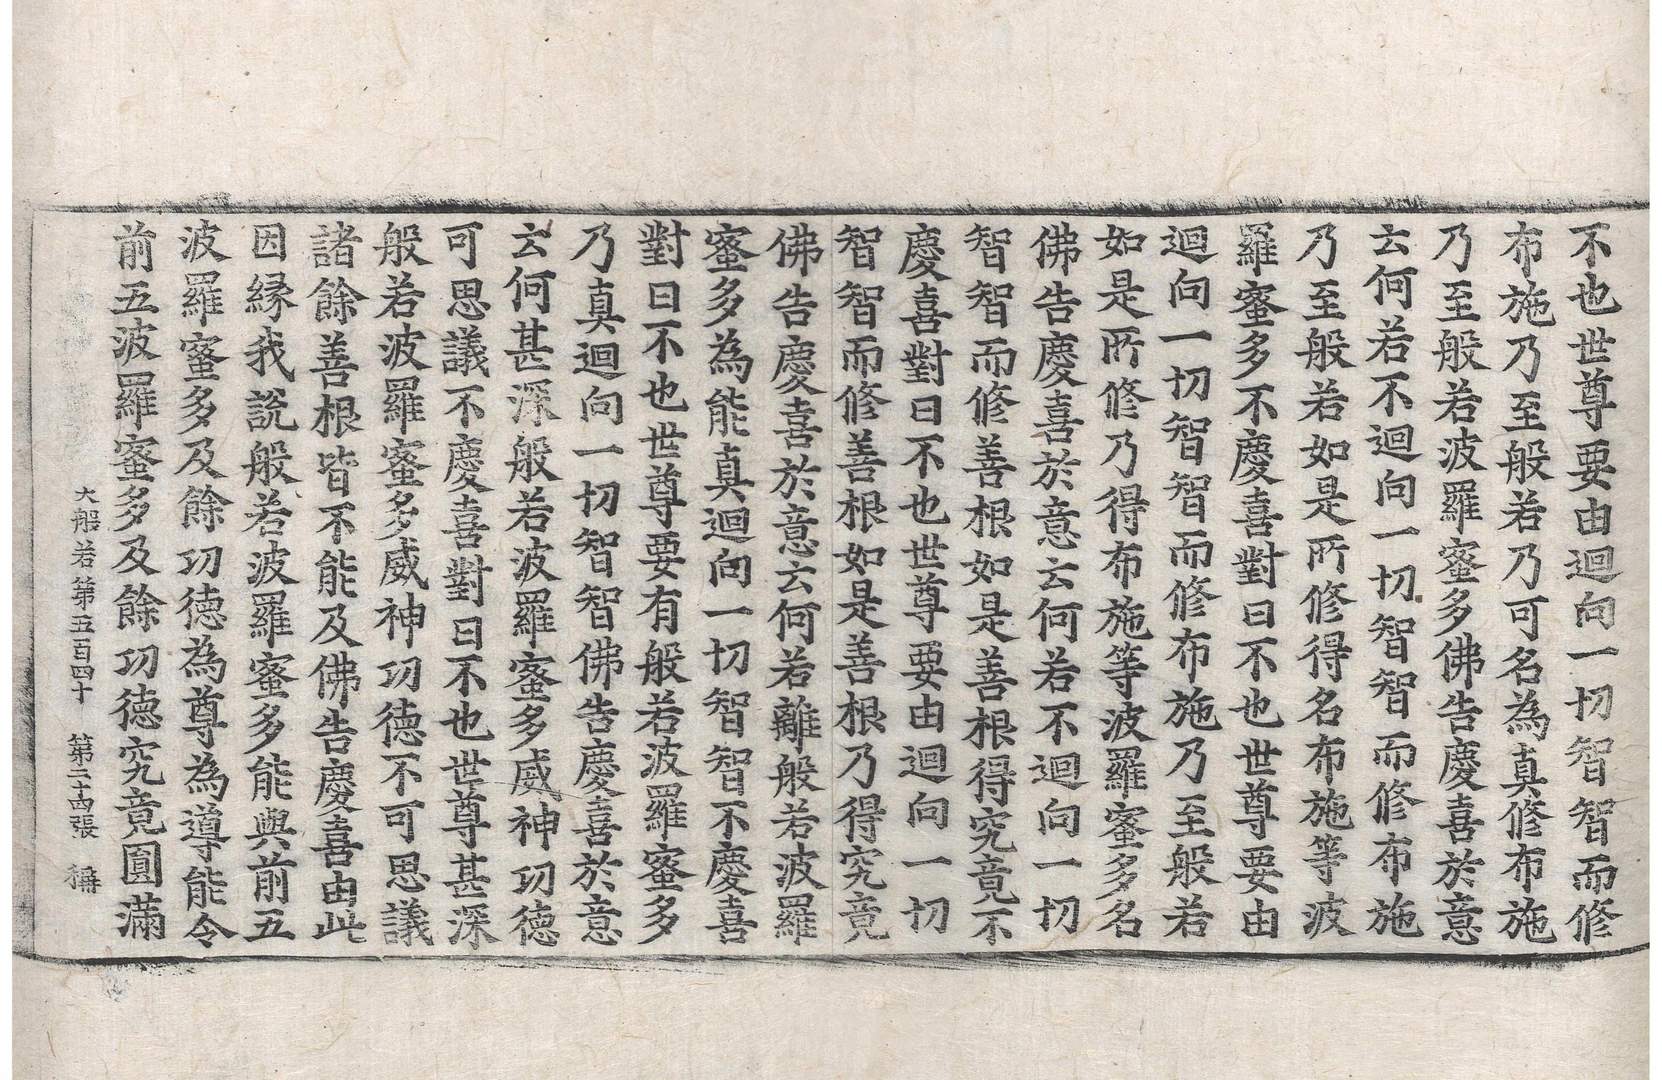 不也世尊要由迴向一切智智而修
布施乃至般若乃可名為真修布施
乃至般若波羅蜜多佛告慶喜於意
云何若不迴向一切智智而修布施
乃至般若如是所修得名布施等波
羅蜜多不慶喜對曰不也世尊要由
迴向一切智智而修布施乃至般若
如是所修乃得布施等波羅蜜多名
佛告慶喜於意云何若不迴向一切
智智而修善根如是善根得究竟不
慶喜對曰不也世尊要由迴向一切
智智而修善根如是善根乃得究竟
佛告慶喜於意云何若離般若波羅
蜜多為能真迴向一切智智不慶喜
對曰不也世尊要有般若波羅蜜多
乃真迴向一切智智佛告慶喜於意
云何甚深般若波羅蜜多威神功德
可思議不慶喜對曰不也世尊甚深
般若波羅蜜多威神功德不可思議
諸餘善根皆不能及佛告慶喜由此
因緣我說般若波羅蜜多能與前五
波羅蜜多及餘功德為尊為導能令
前五波羅蜜多及餘功德究竟圓滿
大般若第五百四十 第二十四張 稱